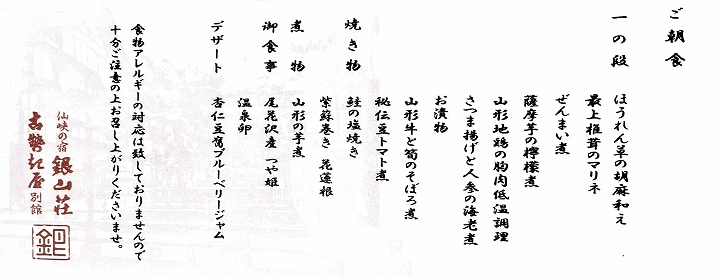 ご朝食
一の段
ほうれん草の胡麻和え
最上椎茸のマリネ
ぜんまい煮
薩摩芋の檸檬煮
山形地鶏の胸肉低温調理
さつま揚げと人参の海老煮
お漬物
山形牛と筍のそぼろ煮
秘伝豆トマト煮
焼き物 鮭の塩焼き
紫蘇巻き 花蓮根
煮物 山形の芋煮
御食事 尾花沢産 つや姫
温泉卵
デザート 杏仁豆腐ブルーベリージャム
食物アレルギーの対応は致しておりませんので
十分ご注意の上お召し上がりくださいませ。
仙峡の宿 銀山荘
古勢起屋 別館
銀